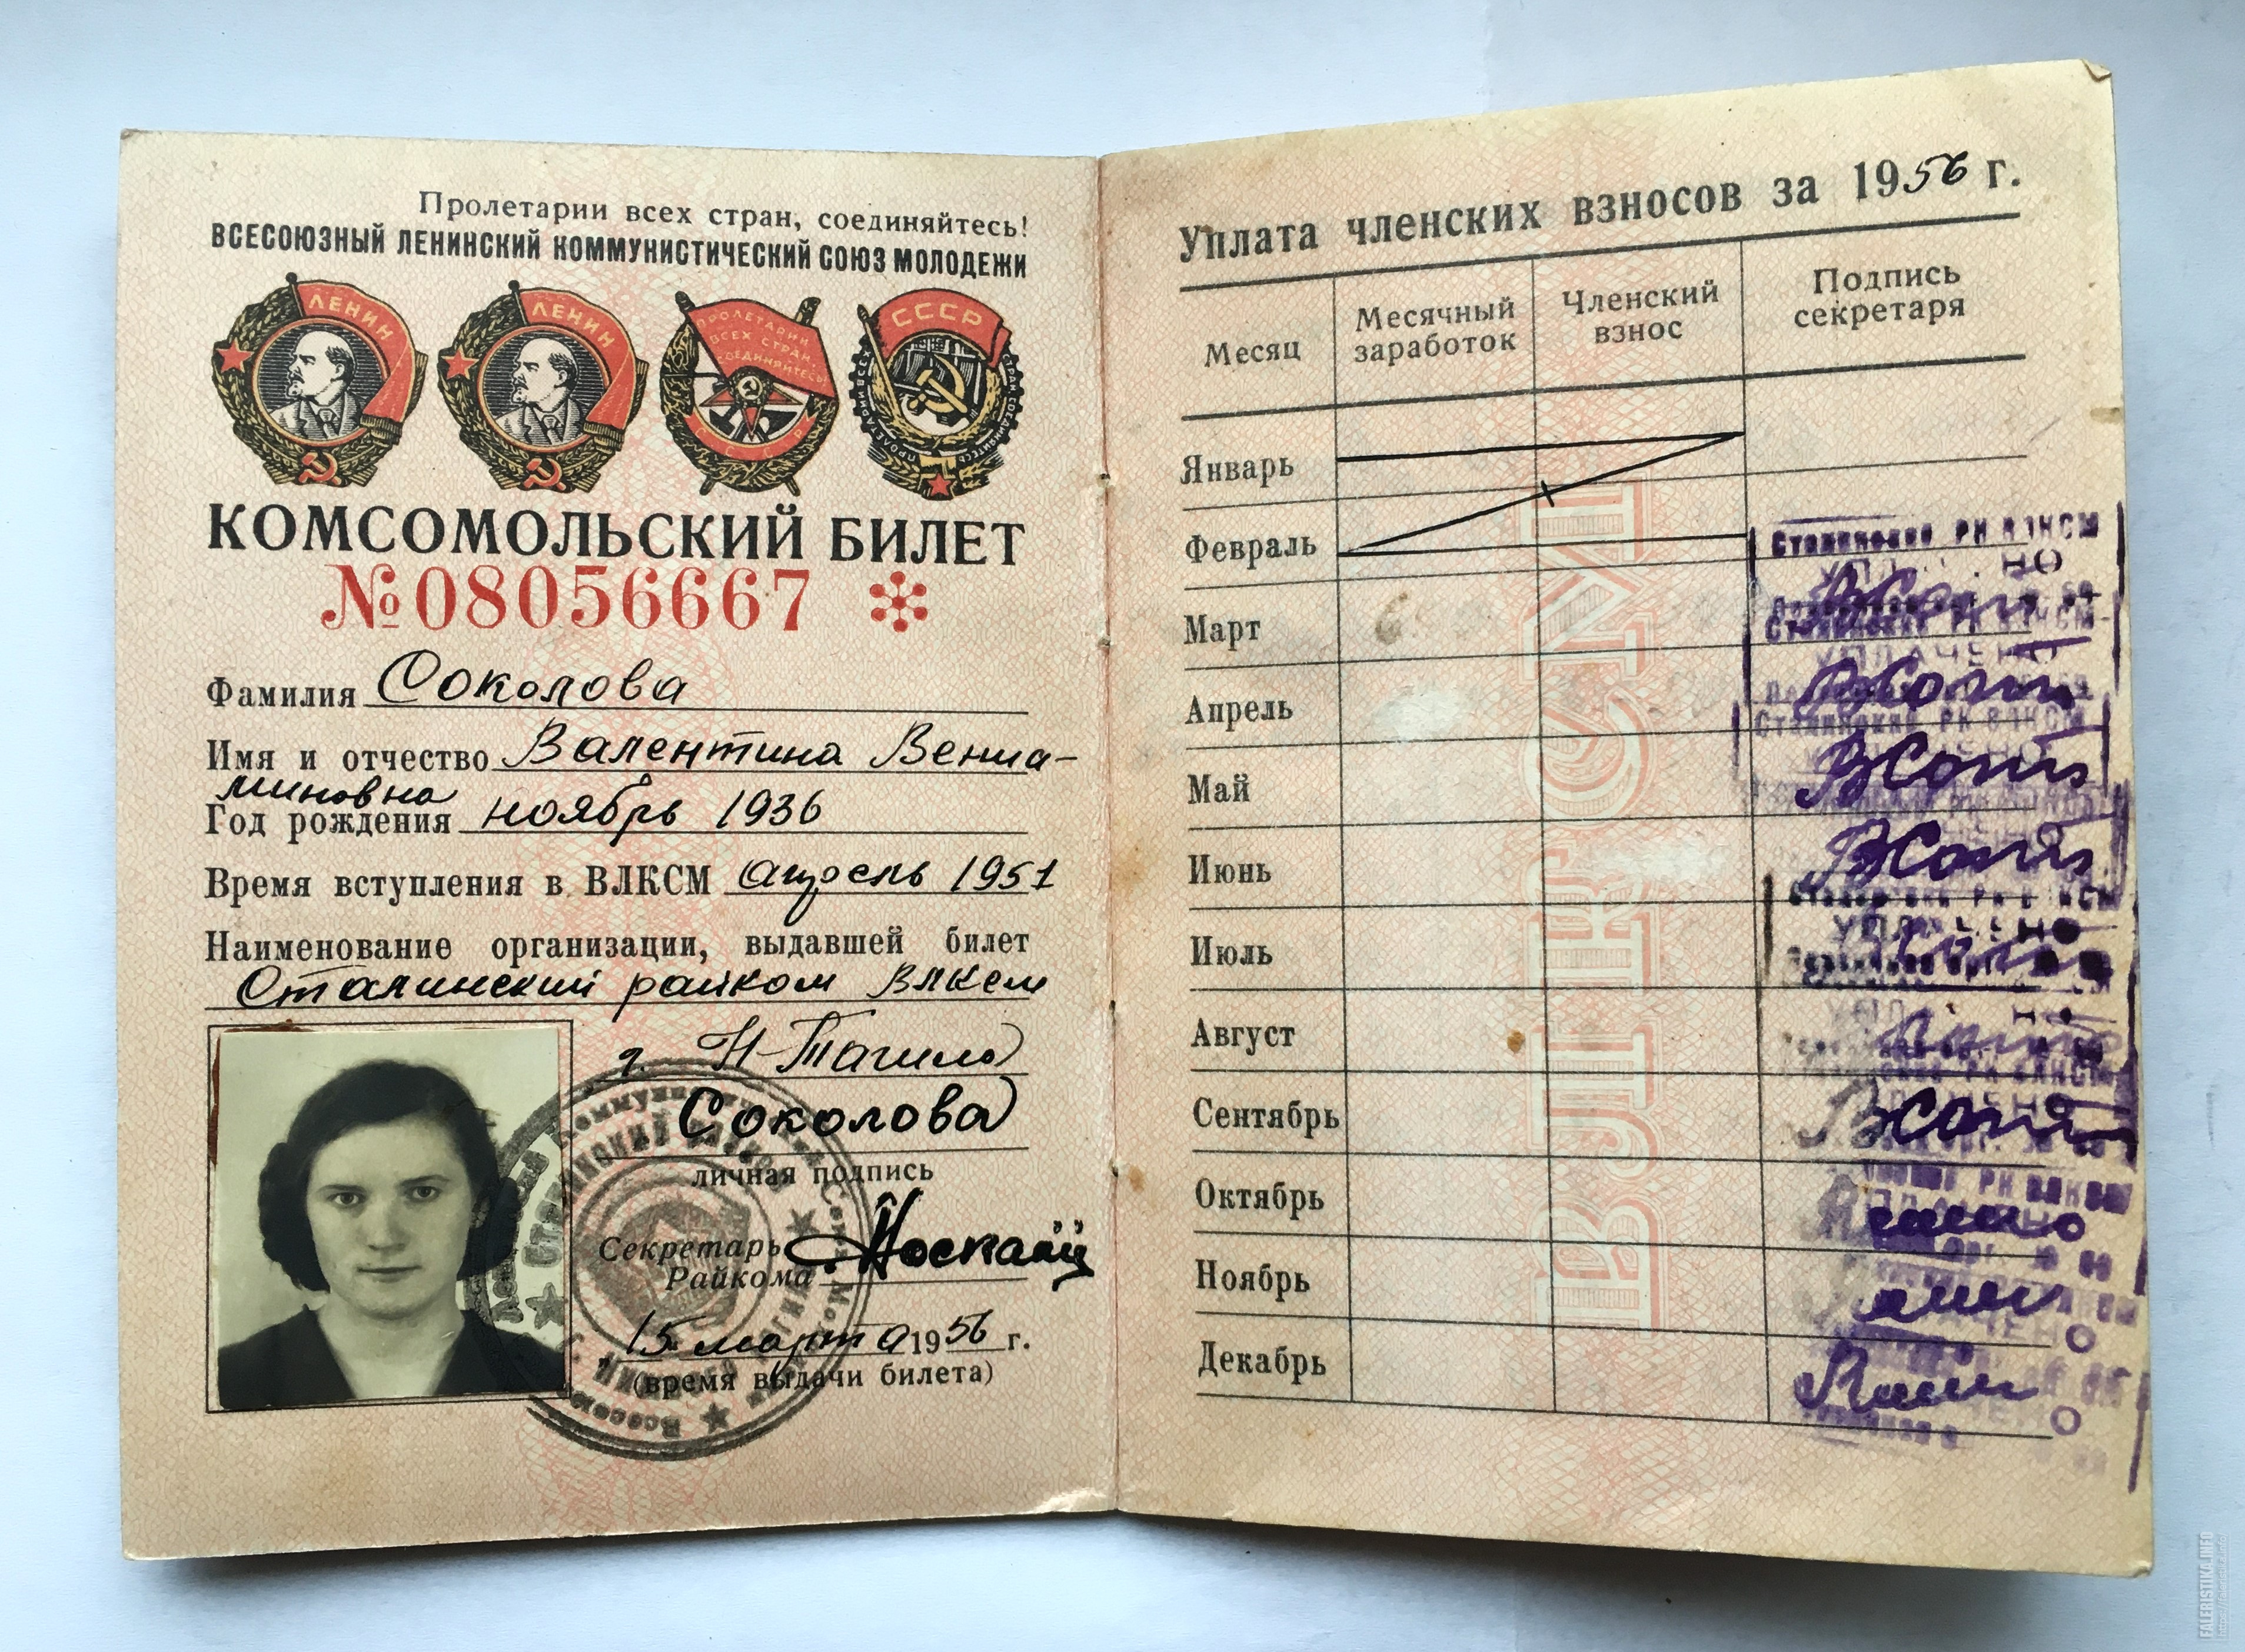 Пролетарии всех стран, соединяйтесь!
ВСЕСОЮЗНЫЙ ЛЕНИНСКИЙ КОММУНИСТИЧЕСКИЙ СОЮЗ МОЛОДЕЖИ
ЛЕНИН
ЛЕНИН
ПРОЛЕТАРИИ
ВСЕХ СТРАН
СОЕДИНЯЙТЕСЬ!
СССР
СССР
КОМСОМОЛЬСКИЙ БИЛЕТ
№08056667
Фамилия Соколова
Имя и отчество Валентина Вениа-
миновна
Год рождения ноябрь 1936
Время вступления в ВЛКСМ апрель 1951
Наименование организации, выдавшей билет
Сталинский райком ВЛКСМ
г. Н-Тагил
Соколова
личная подпись
Секретарь
Райкома
15 марта 1956 г.
(время выдачи билета)
Уплата членских взносов за 1956 г.
Месяц
Месячный заработок
Членский взнос
Подпись секретаря
Январь
Февраль
Март
Апрель
Май
Июнь
Июль
Август
Сентябрь
Октябрь
Ноябрь
Декабрь
ВЛКСМ
Сталинский РК ВЛКСМ
УПЛАЧЕНО
FALERISTIKA.INFO